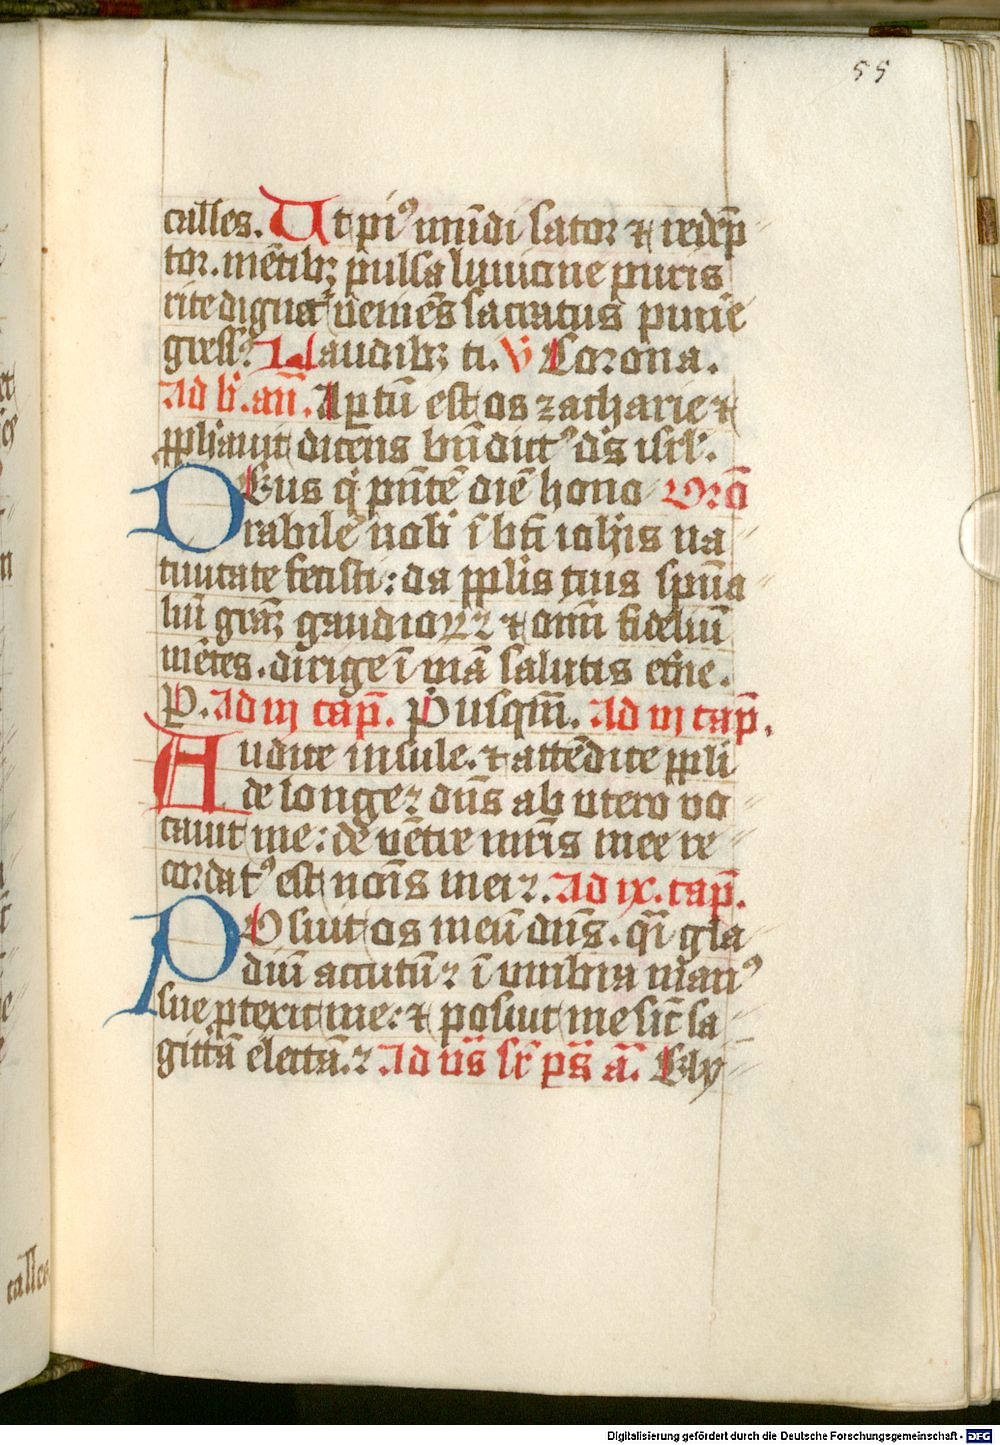 55
calles. Ut pi⁹ mūdi sator ⁊ redēp
tor. mētibꝫ pulsa luuione puris
rite dignet᷑ veniēs sacratus pon̄e
gress⁹. Laudibꝫ ti. V̄ Corona.
Ad b̄. an̄. Aptū est os zacharie ⁊
ꝓph̄auit dicens bn̄dict⁹ ds̄ isrl̄.
Deus q̇ pn̄tē diē hono Orō
rabilē nob̄ ī bt̄i ioh̄is na
tiuitate fecisti: da ppl̄is tuis spūa
liū grāꝫ gaudioꝝ ⁊ oīm fideliū
mētes. dirige ī viā salutis et̄ne.
P. Ad iij cap̄. Priusqm̄. Ad vj cap̄.
Audite insule. ⁊ attēdite ppl̄i
de longe ⁊ dn̄s ab utero vo
cauit me: de vētre mr̄is mee re
cordat⁹ est noīs mei ⁊. Ad ix. cap̄.
Posuit os meū dn̄s. q̄i gla
diū accutū ⁊ ī umbra man⁹
sue ꝓtexit me: ⁊ posuit me sic̄ sa
gittā electā. ⁊ Ad vs̄ sr̄ ps̄ a. Ely
calles
Digitalisierung gefördert durch die Deutsche Forschungsgemeinschaft - DFG